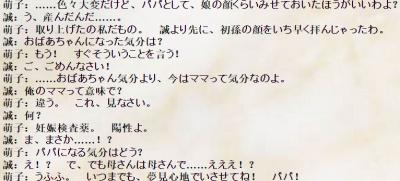 萌子：……色々大変だけど、パパとして、娘の顔くらいみせておいたほうがいいわよ？
誠：う、産んだんだ……。
萌子：取り上げたの私だもの。　誠より先に、初孫の顔をいち早く拝んじゃったわ。
誠：おばあちゃんになった気分は？
萌子：もう！　すぐそういうことを言う！
誠：ご、ごめんなさい！
萌子：……おばあちゃん気分より、今はママって気分なのよ。
誠：俺のママって意味で？
萌子：違う。　これ、見なさい。
誠：何？
萌子：妊娠検査薬。　陽性よ。
誠：ま、まさか……！？
萌子：パパになる気分はどう？
誠：え！？　で、でも母さんは母さんで……えええ！？
萌子：うふふ。　いつまでも、夢見心地でいさせてね！　パパ！